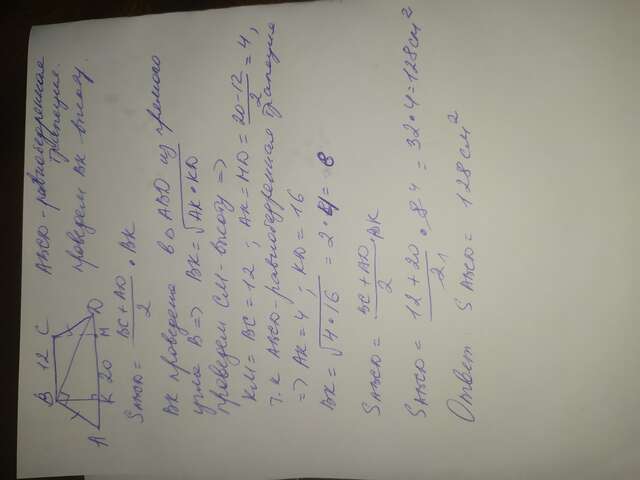 B 12 C
A K 20 M D
ABCD - равнобедренная
трапеция.
проведем BK высоту.
S ABCD = BC + AD / 2 • BK
BK проведена в △ ABD из прямого
угла B => BK = √AK • KD
проведем CM - высоту =>
KM = BC = 12 ; AK = MD = 20-12 / 2 = 4,
т.к ABCD - равнобедренная трапеция
=> AK = 4 ; KD = 16
BK = √4 • 16 = 2 • 4 = 8
S ABCD = BC + AD / 2 • BK
S ABCD = 12 + 20 / 2 1 • 8 4 = 32 • 4 = 128 см²
Ответ S ABCD = 128 см²